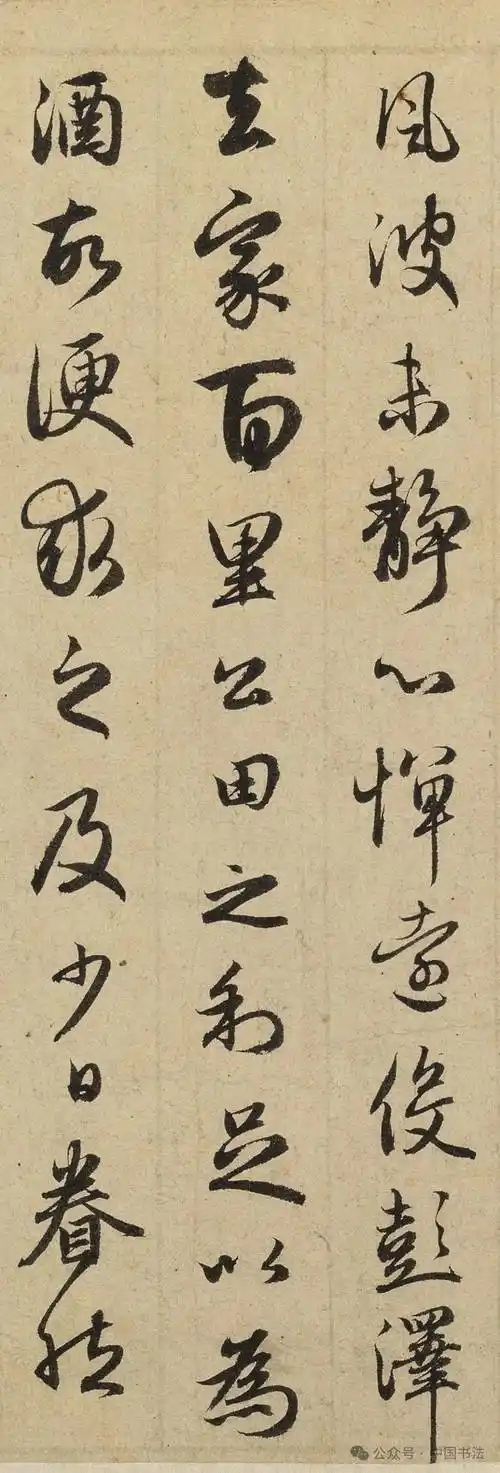 風波未静心憚遠役彭澤
去家百里公田之利足以為
酒故便求之及少日眷然
公众号·中国书法